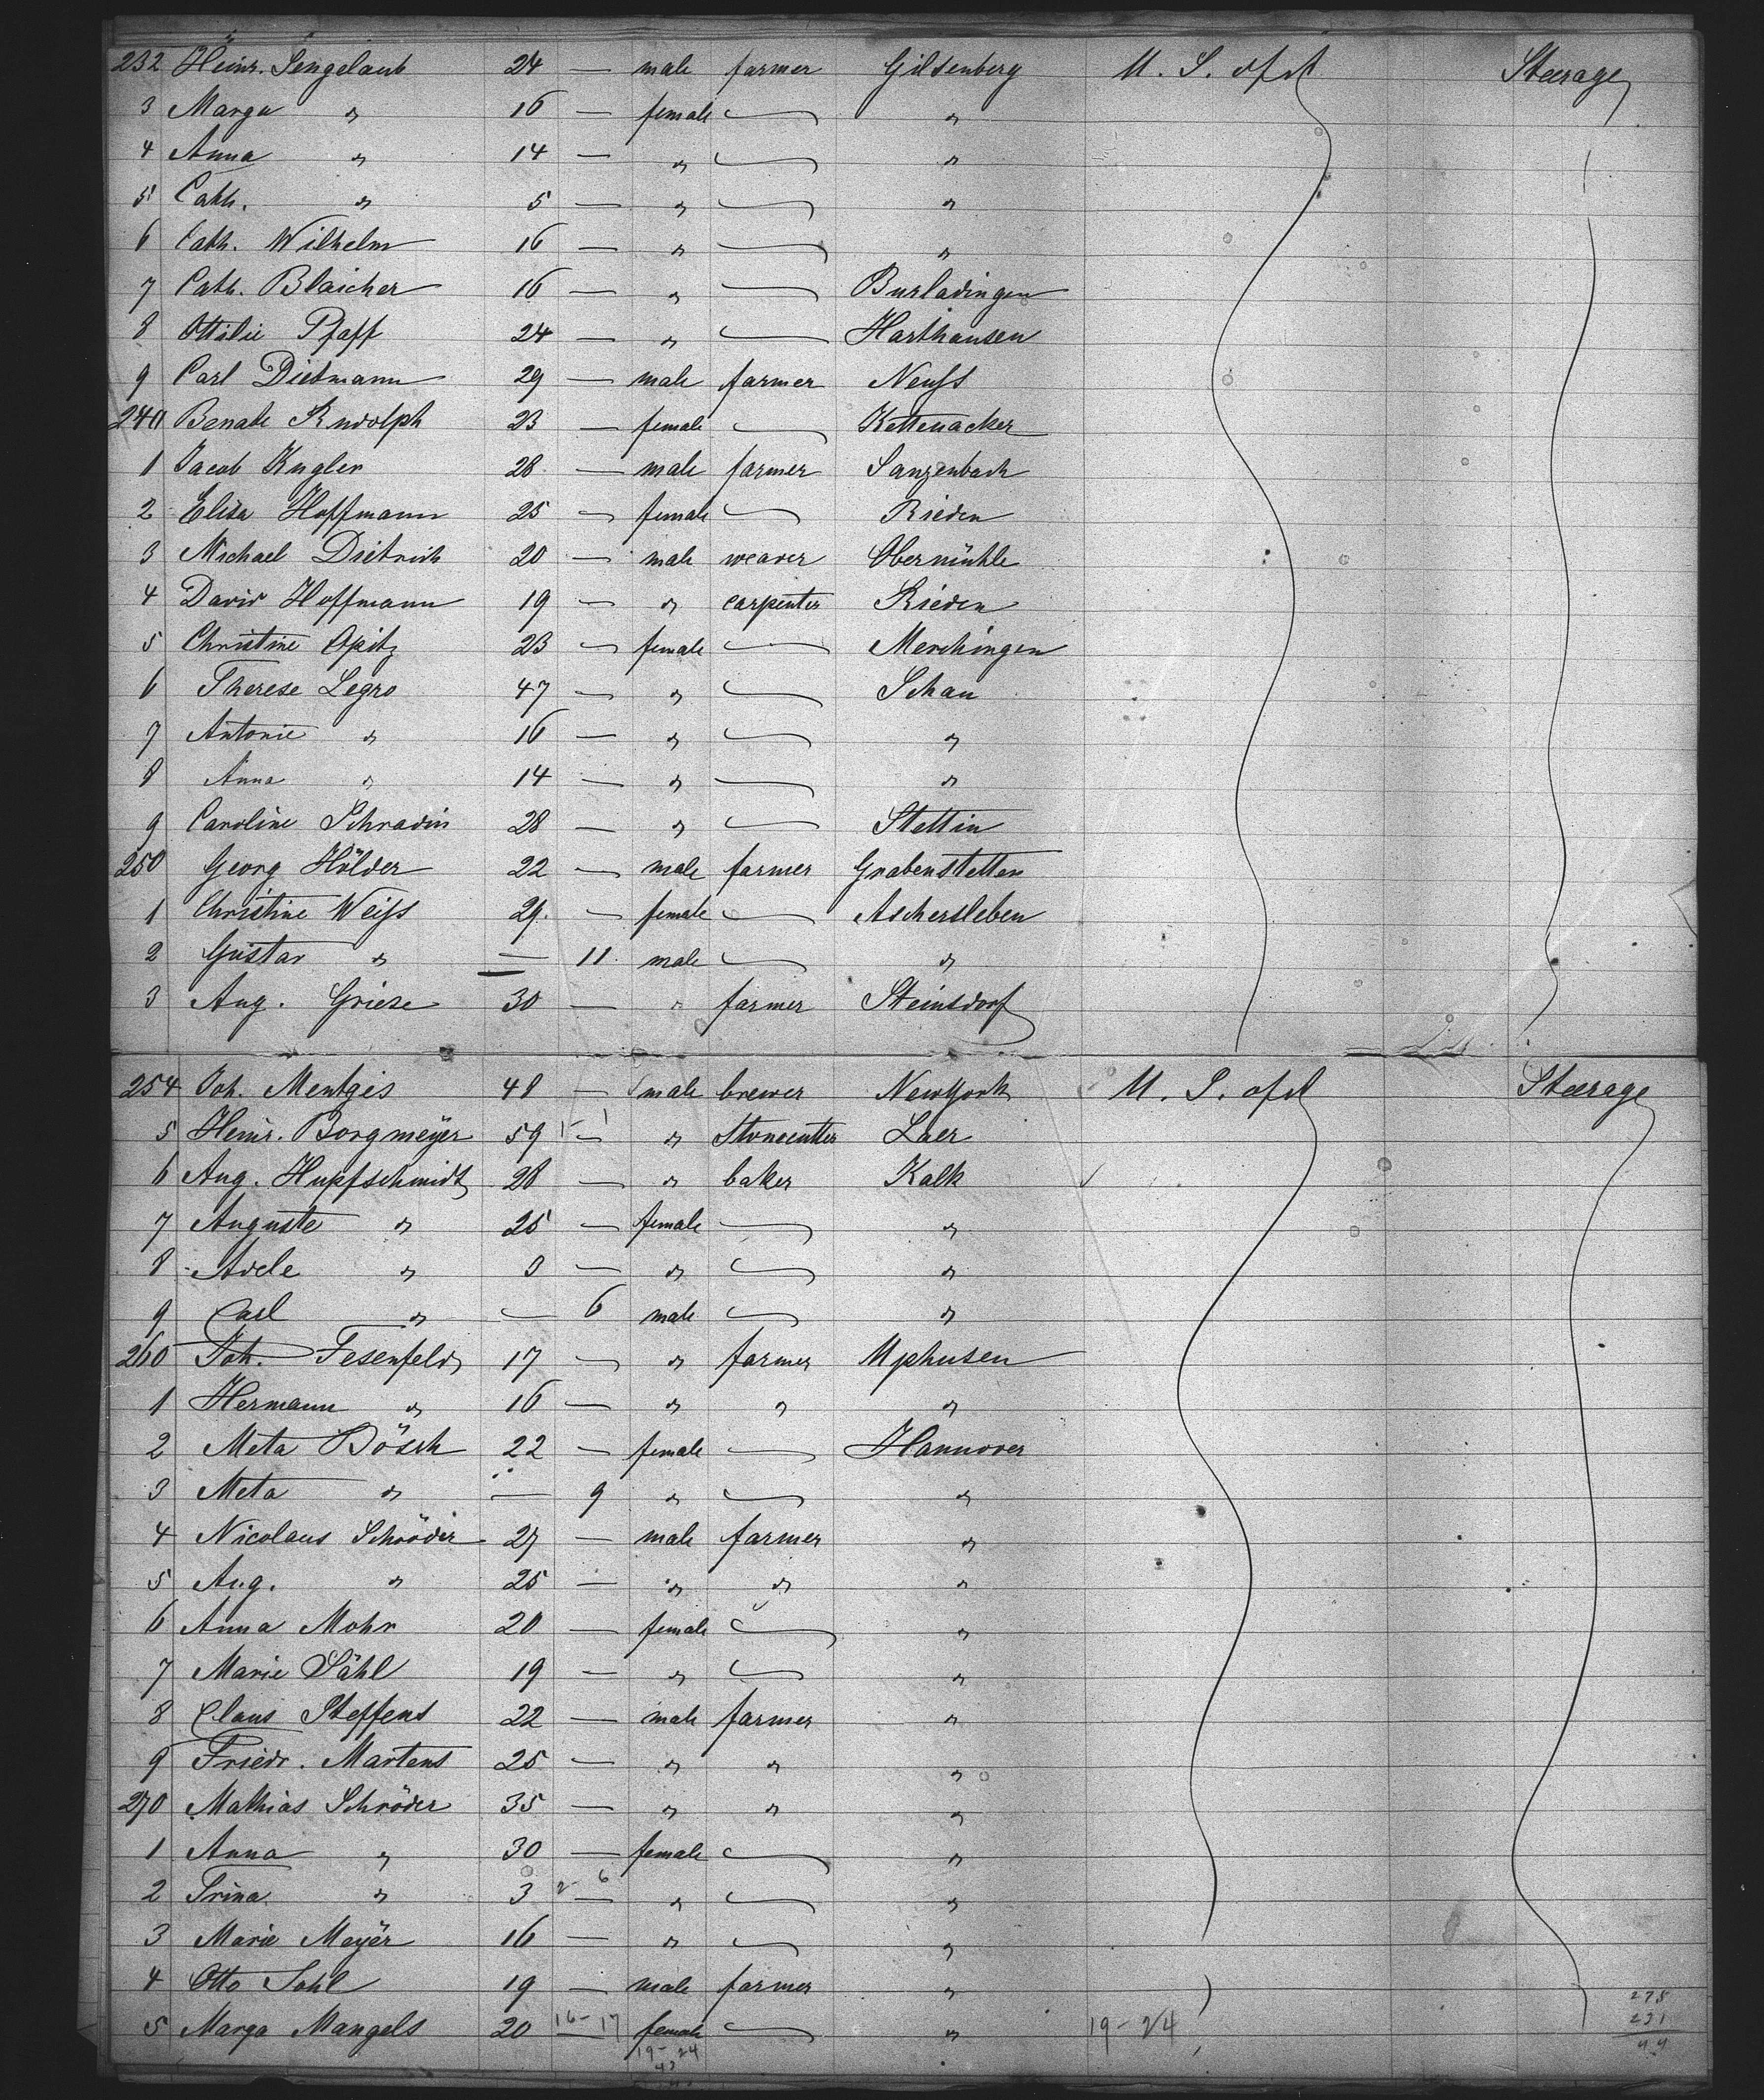 232 Heinr. Lengelaub 24 — male farmer Gilsenberg U. S. of A Steerage
3 Marga " 16 — female — "
4 Anna " 14 — " — "
5 Cath. " 5 — " — "
6 Cath. Wilhelm 16 — " — "
7 Cath. Blaicher 16 — " — Burladingen
8 Ottilie Pfaff 24 — " — Harthausen
9 Carl Dietmann 29 — male farmer Neuss
240 Renate Rudolph 23 — female — Kettenacker
1 Jacob Kugler 28 — male farmer Sanzenbach
2 Elisa Hoffmann 25 — female — Rieden
3 Michael Dietrich 20 — male weaver Obermühle
4 David Hoffmann 19 — " carpenter Rieden
5 Christine Opitz 23 — female — Merchingen
6 Therese Legro 47 — " — Schau
7 Antonie " 16 — " — "
8 Anna " 14 — " — "
9 Caroline Schradin 28 — " — Stettin
250 Georg Hölder 22 — male farmer Grabenstetten
1 Christine Weiss 29 — female — Aschersleben
2 Gustav " — 11 male — "
3 Aug. Griese 30 — " farmer Steinsdorf
254 Joh. Mentges 48 — male brewer New York U. S. of A Steerage
5 Heinr. Borgmeÿer 59 — " Stonecutter Laer
6 Aug. Hupfschmidt 28 — " baker Kalk
7 Auguste " 25 — female — "
8 Adele " 3 — " — "
9 Carl " — 6 male — "
260 Joh. Fesenfeld 17 — " farmer Uphusen
1 Hermann " 16 — " " "
2 Meta Bösch 22 — female — Hannover
3 Meta " — 9 " — "
4 Nicolaus Schröder 27 — male farmer "
5 Aug. " 25 — " " "
6 Anna Mohr 20 — female — "
7 Marie Sähl 19 — " — "
8 Claus Steffens 22 — male farmer "
9 Friedr. Martens 25 — " " "
270 Mathias Schröder 35 — " " "
1 Anna " 30 — female — "
2 Trina " 3 — " — "
3 Marie Meÿer 16 — " — "
4 Otto Sahl 19 — male farmer "
275
5 Marga Mangels 20 16-17 female — " 19-24 231
19-24 44